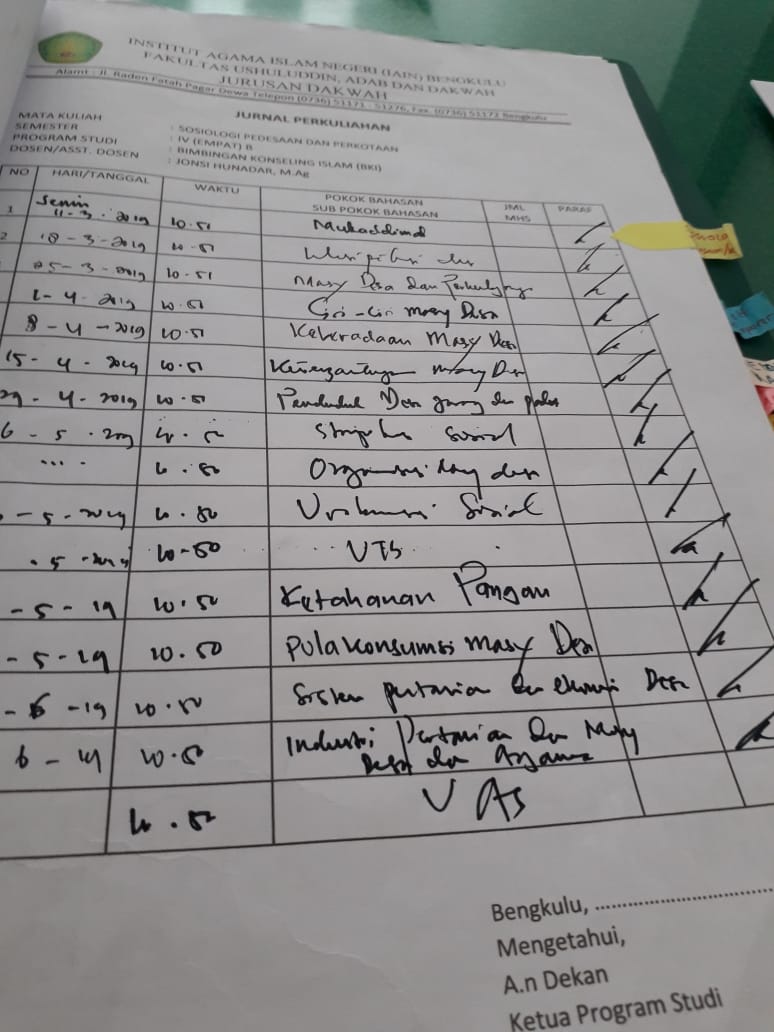 INSTITUT AGAMA ISLAM NEGERI (IAIN) BENGKULU
FAKULTAS USHULUDDIN, ADAB DAN DAKWAH
JURUSAN DAKWAH
Alamt : Jl. Raden Fatah Pagar Dewa Telepon (0736) 51171 - 51276, Fax. (0736) 51172 Bengkulu
JURNAL PERKULIAHAN
MATA KULIAH : SOSIOLOGI PEDESAAN DAN PERKOTAAN
SEMESTER : IV (EMPAT) B
PROGRAM STUDI : BIMBINGAN KONSELING ISLAM (BKI)
DOSEN/ASST. DOSEN : JONSI HUNADAR, M.Ag
NO HARI/TANGGAL WAKTU POKOK BAHASAN JML PARAF
SUB POKOK BAHASAN MHS
1 Senin
11-3-2019 10.50 Mukaddimah
2 18-3-2019 10.50
25-3-2019 10.50 Masy Desa dan
1-4-2019 10.50 Ciri-Ciri masy Desa
8-4-2019 10.50 Keberadaan Masy Desa
15-4-2019 10.50 masy Desa
29-4-2019 10.50 Penduduk Desa yang
6-5-2019 10.50 Sosial
.... 10.50
-5-2019 10.50 Sosial
.5-2019 10-50 UTS
-5-19 10.50 Ketahanan Pangan
-5-19 10.50 Pola Konsumsi masy Desa
-6-19 10.50 Sistem pertanian dan ekonomi Desa
6-19 10.50 Industri Pertanian dan Masy
Desa dan Agama
10.50 UAS
Bengkulu, ..............................
Mengetahui,
A.n Dekan
Ketua Program Studi